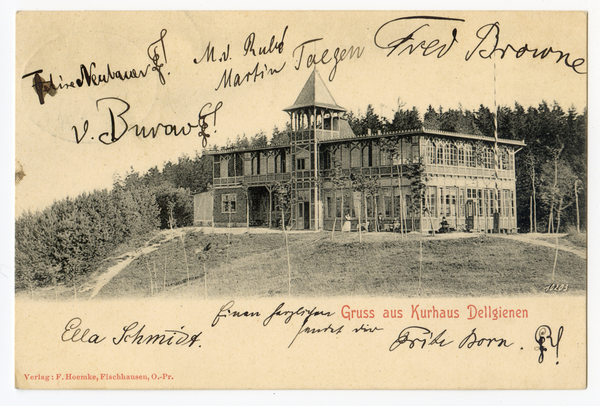 M. v. Rubé
Fred Browne
Martin Taegen
Neubauer
v. Buraw
13293
Einen herzlichen Gruss aus Kurhaus Dellgienen
sendet dir
Ella Schmidt.
Fritz Born.
Verlag: F. Hoemke, Fischhausen, O.-Pr.